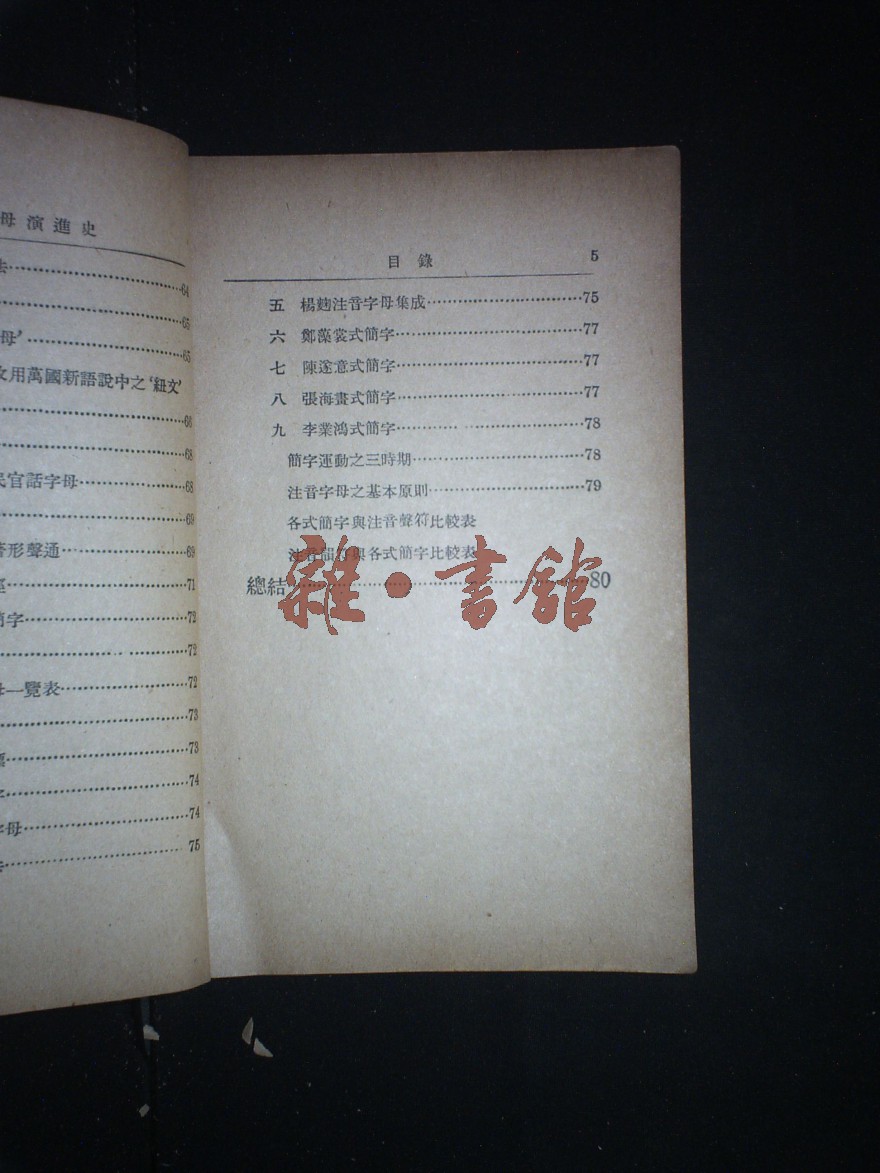 母演進史
法……64
……65
母’……65
文用萬國新語說中之‘紐文’
……68
……68
民官話字母……68
……69
形聲通……69
……71
簡字……72
……72
一覽表……72
……73
……73
字……74
字母……74
……75
目錄 5
五 楊麴注音字母集成……75
六 鄭藻裳式簡字……77
七 陳遂意式簡字……77
八 張海畫式簡字……77
九 李業鴻式簡字……78
簡字運動之三時期……78
注音字母之基本原則……79
各式簡字與注音聲符比較表
注音韻符與各式簡字比較表
總結……80
雜·書館